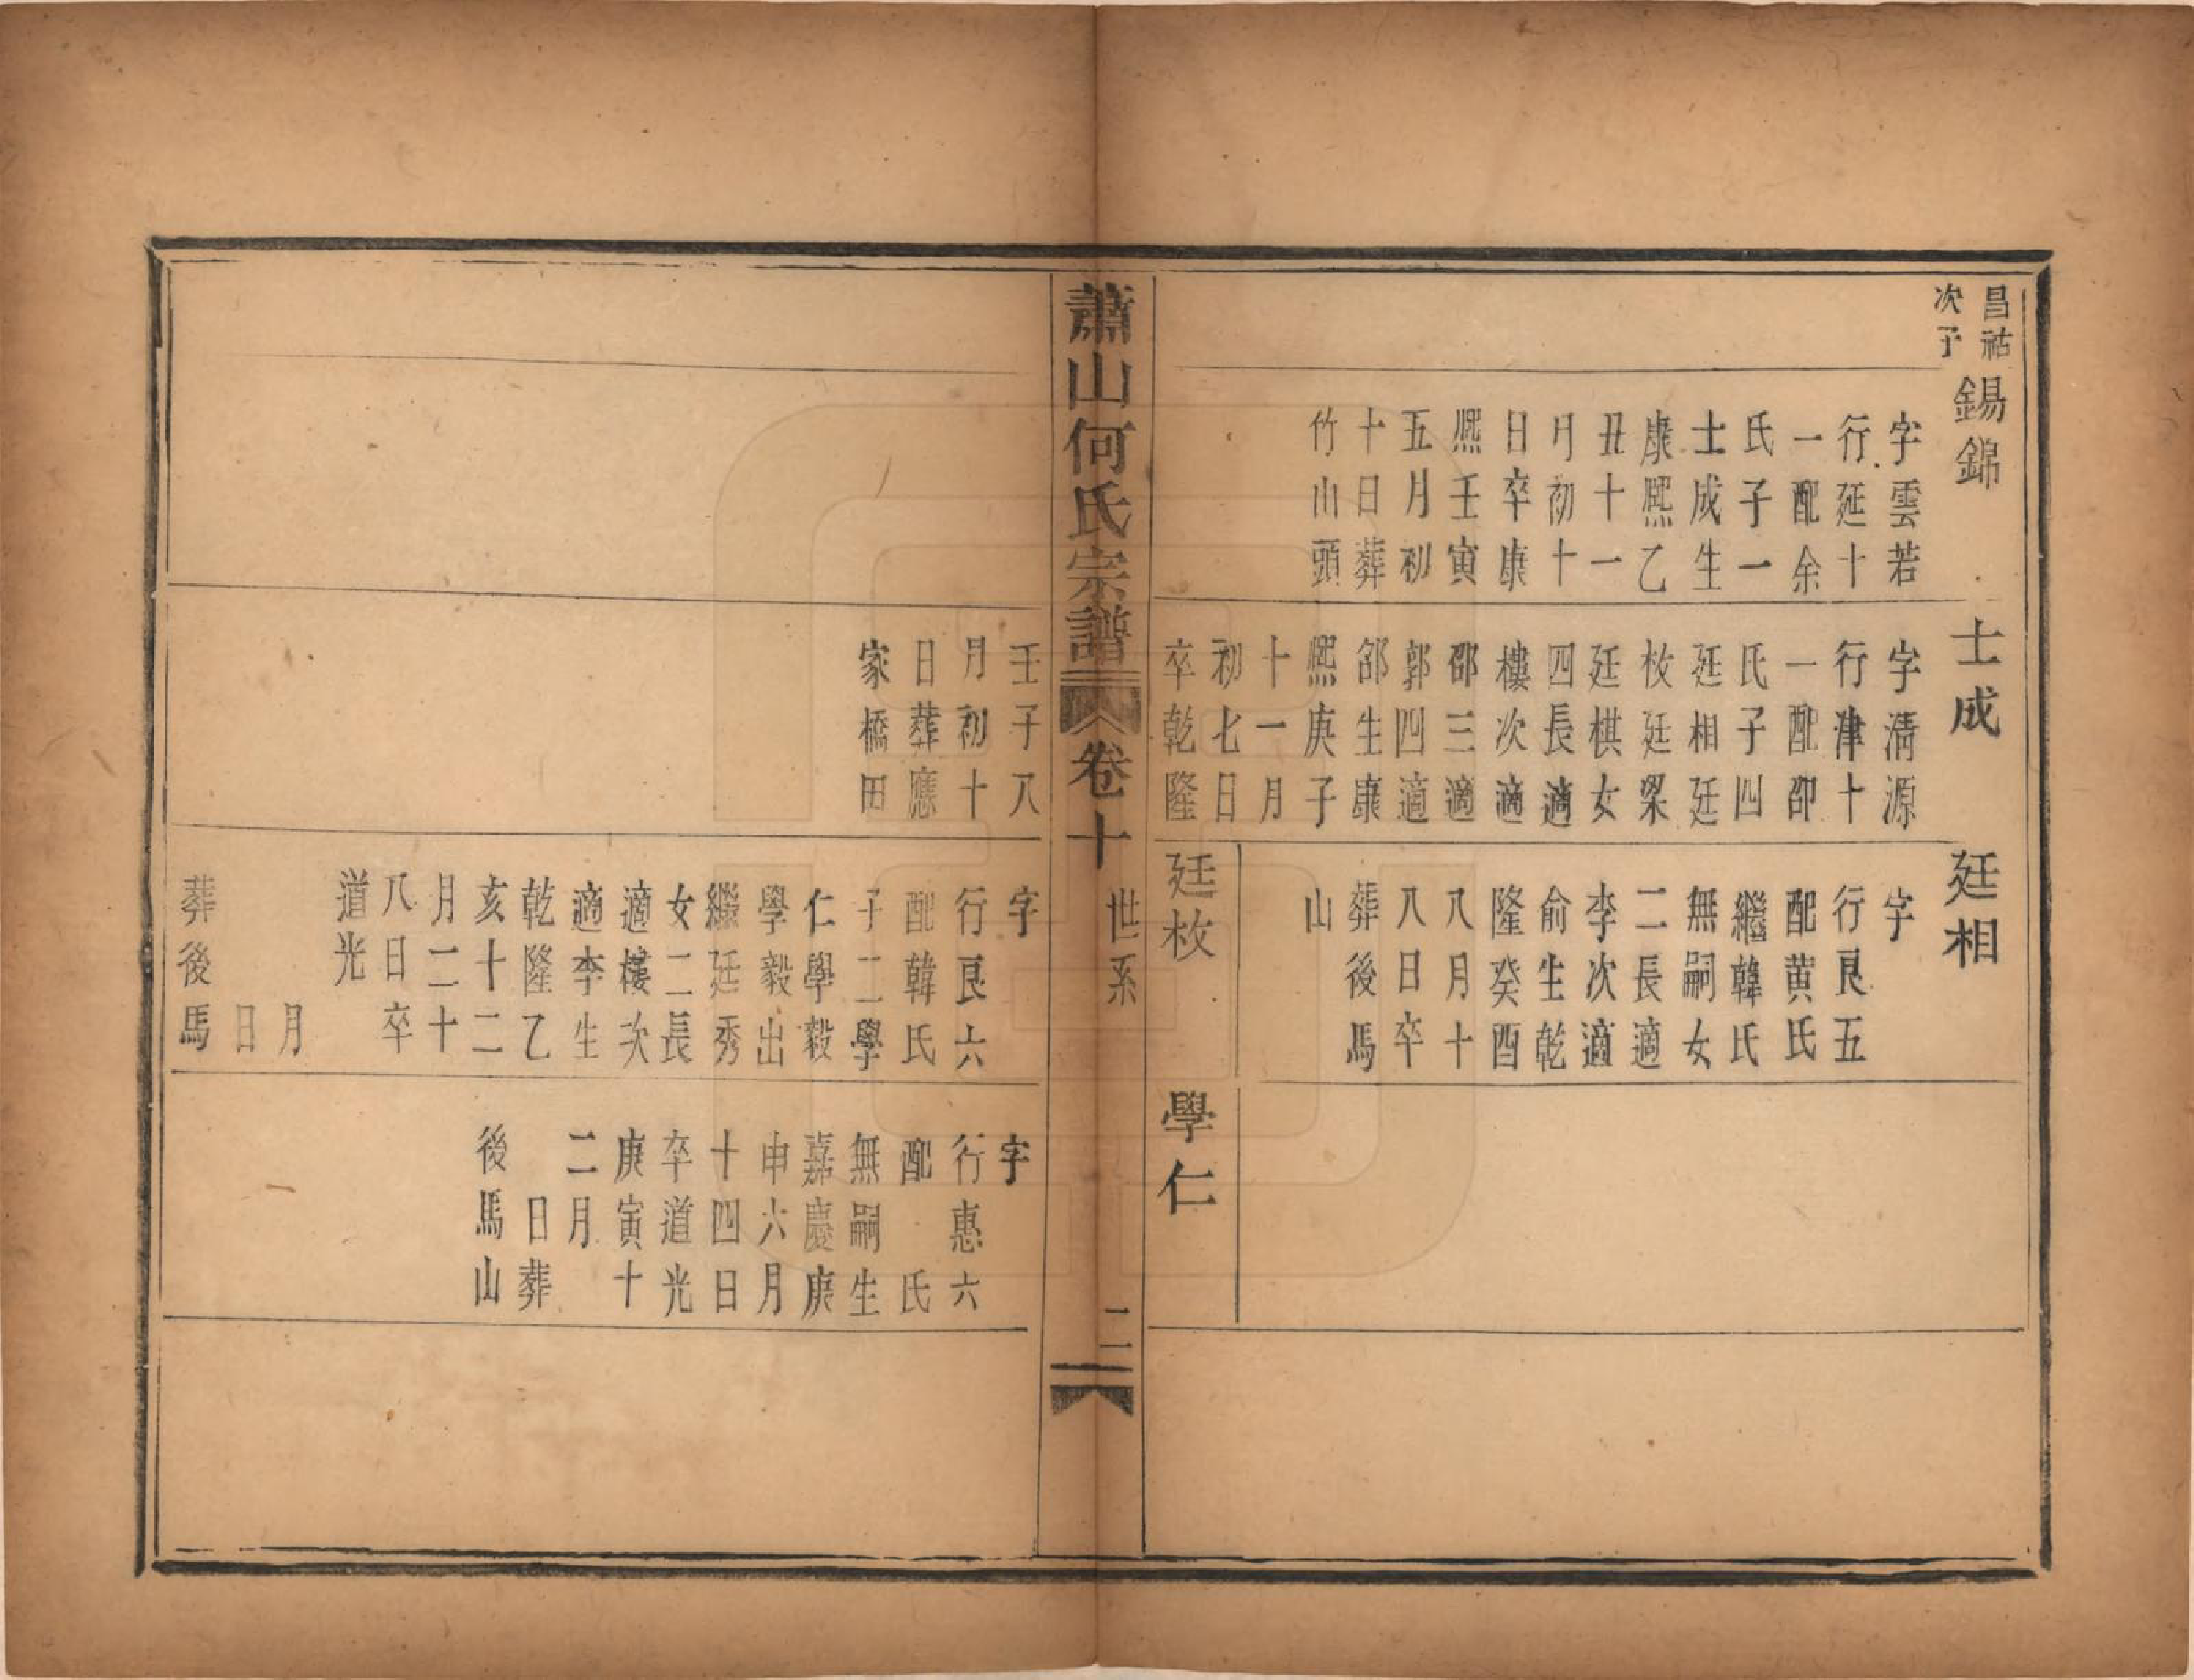 昌祜
次子
錫錦
字雲若
行延十
一配余
氏子一
士成生
康熙乙
丑十一
月初十
日卒康
熙壬寅
五月初
十日葬
竹山頭
士成
字淸源
行津十
一配邵
氏子四
廷相廷
枚廷桀
廷棋女
四長適
樓次適
邵三適
郭四適
郤生康
熙庚子
十一月
初七日
卒乾隆
壬子八
月初十
日葬應
家橋田
廷相
字
行良五
配黄氏
繼韓氏
無嗣女
二長適
李次適
俞生乾
隆癸酉
八月十
八日卒
葬後馬
山
廷枚
字
行良六
配韓氏
子二學
仁學毅
學毅出
繼廷秀
女二長
適樓次
適李生
乾隆乙
亥十二
月二十
八日卒
道光
月
日
葬後馬
學仁
字
行惠六
配 氏
無嗣生
嘉慶庚
申六月
十四日
卒道光
庚寅十
二月
日葬
後馬山
蕭山何氏宗譜
卷十
世系
二